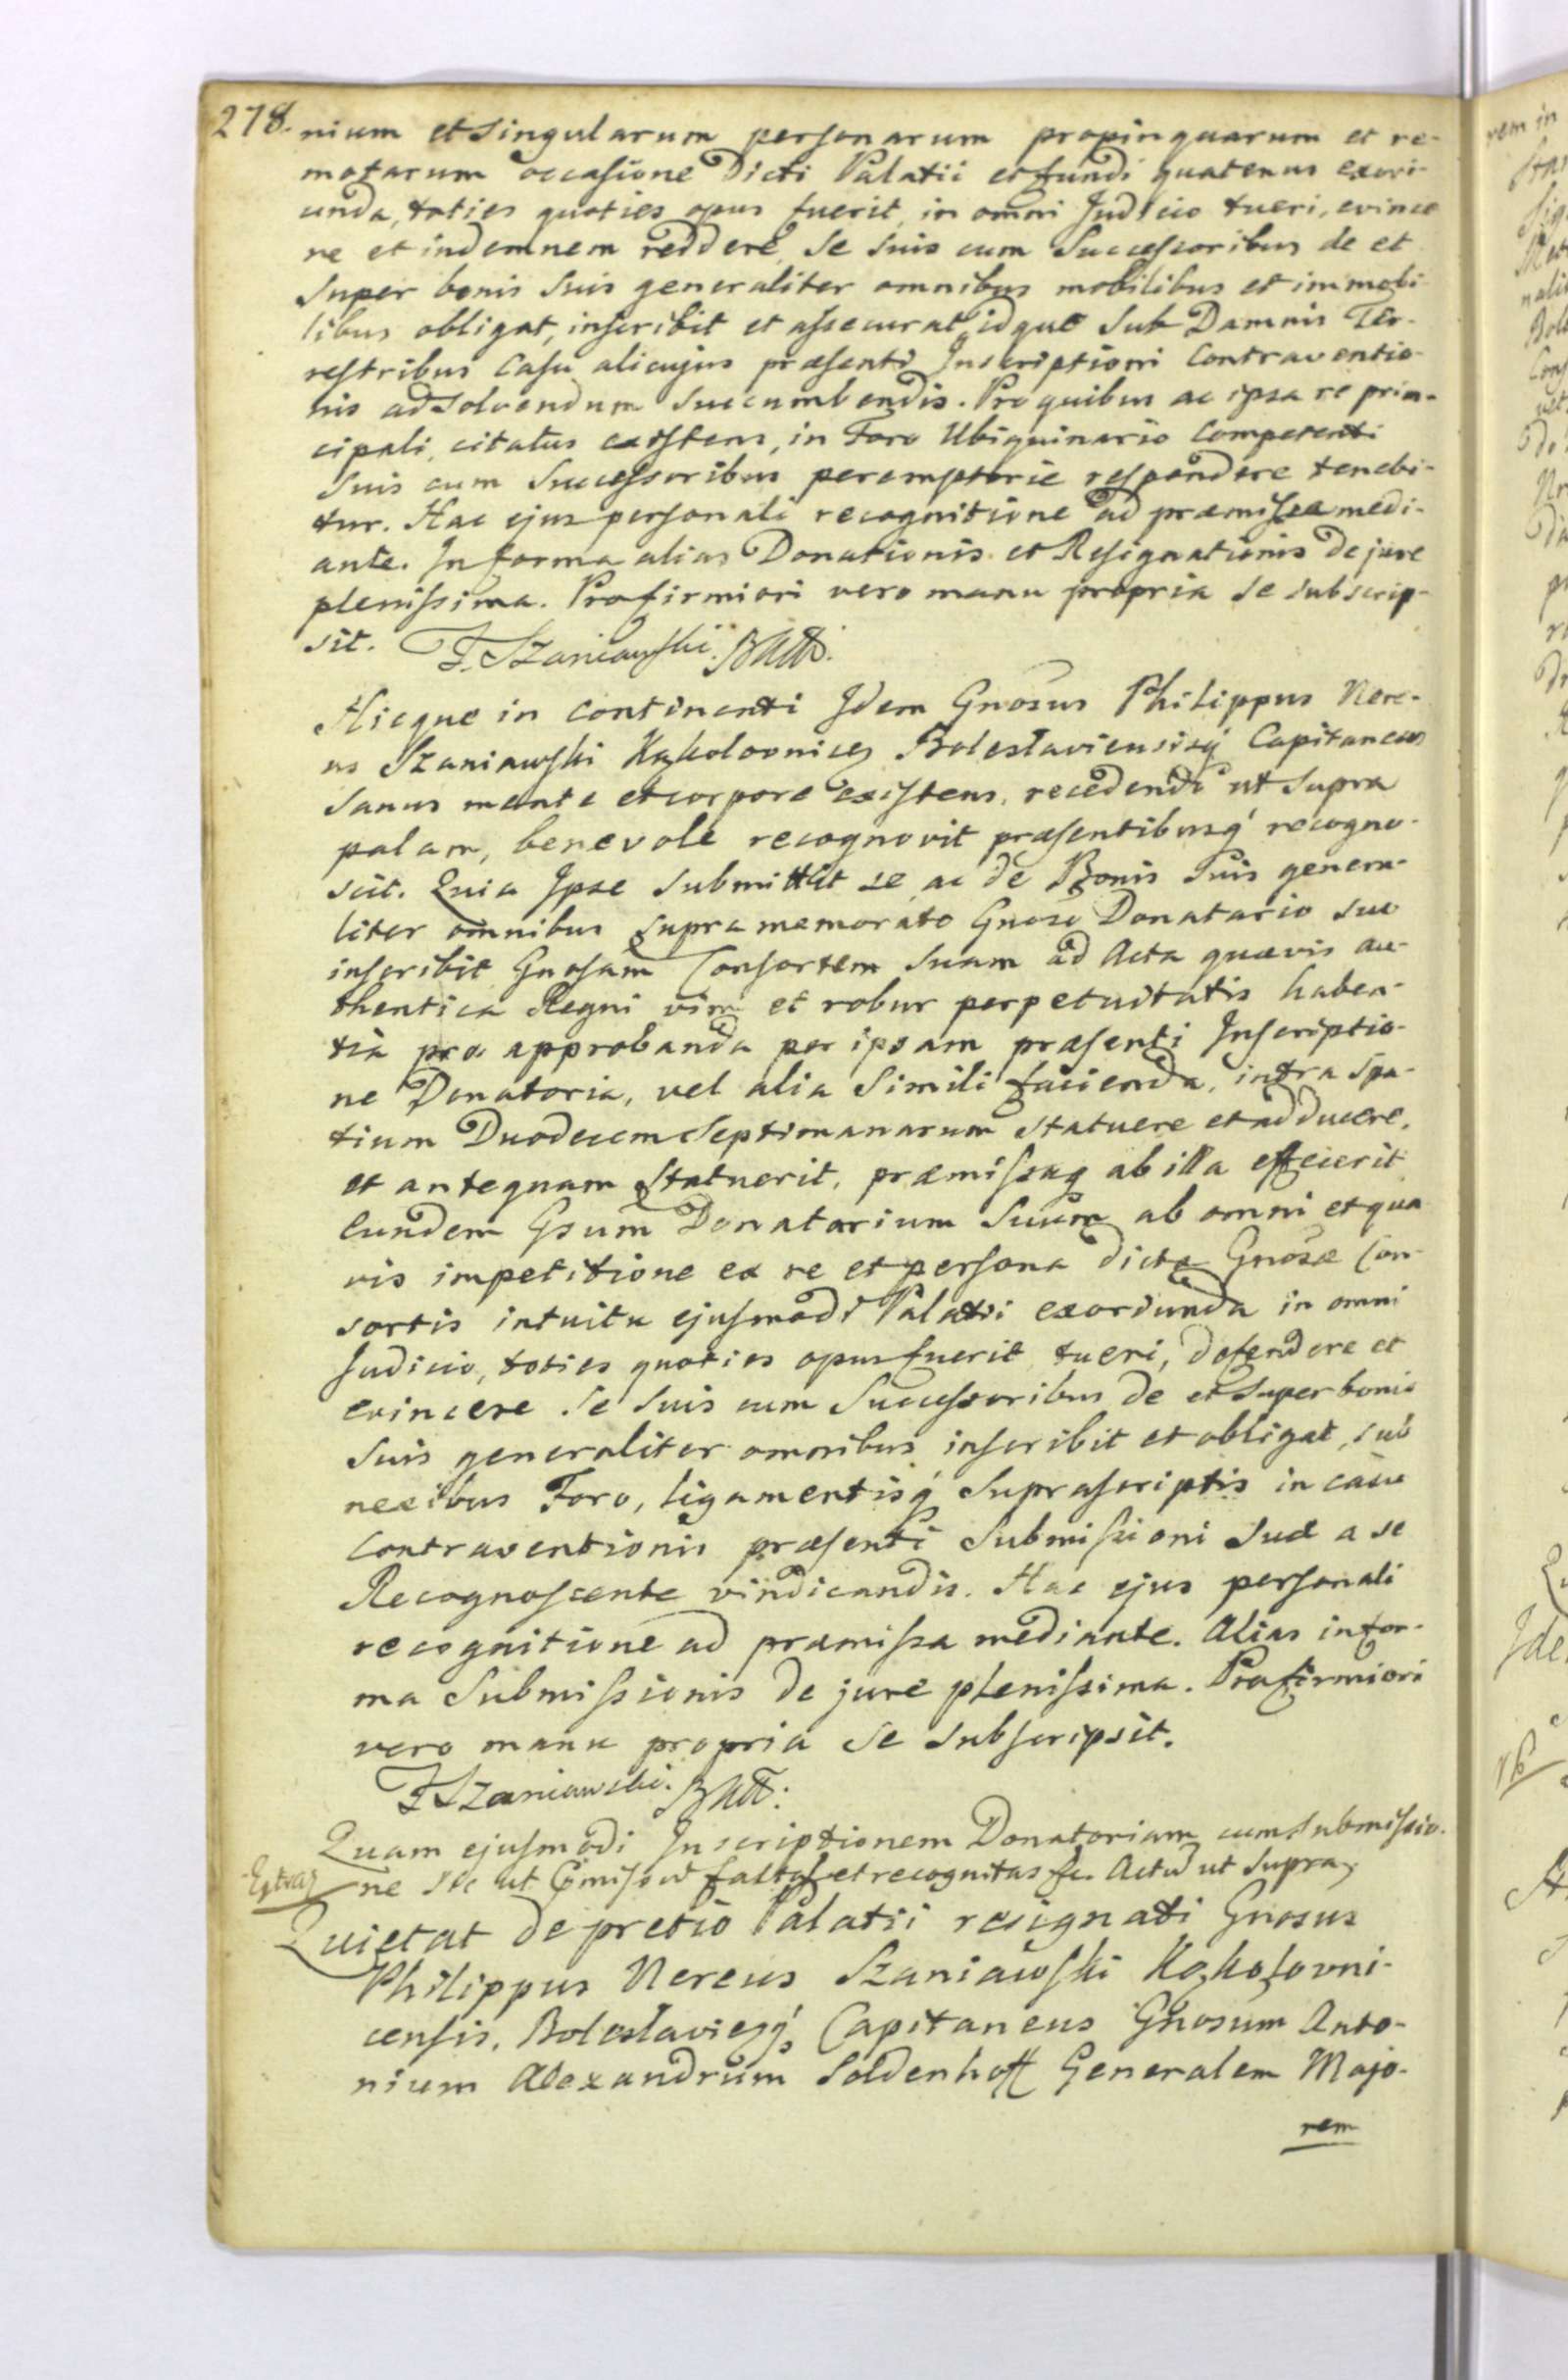 278. nium et Singularum personarum propinquarum et re-
motarum occasione Dicti Palatii et fundi quatenus exori-
unda, toties quoties opus fuerit, in omni Judicio tueri, evince
re et indemnem reddere, Se Suis cum Successoribus de et
Super bonis Suis generaliter omnibus mobilibus et immobi-
libus obligat, inscribit et assecurat, idque Sub Damnis Ter-
restribus Casu alicujus præsenti Inscriptioni Contraventio-
nis ad Solvendum Succumbendis. Pro quibus ac ipsa re prin-
cipali, citatus existens, in Foro Ubiquinario Competenti
Suis cum Successoribus peremptorie respondere tenebi-
tur. Hac ejus personali recognitione ad præmissa medi-
ante. In forma alias Donationis et Resignationis de jure
plenissima. Pro firmiori vero manu propria Se subscrip-
sit. F. Szaniawski
Hicque in Continenti Idem Gnosus Philippus Nere-
us Szaniawski Bolestaviensisq Capitaneus
Sanus mente et corpore existens, recedendo ut Supra
palam, benevole recognovit præsentibusq recogno-
scit. Quia Ipse Submittit se, ac de Bonis Suis genera-
liter omnibus supra memorato Gnoso Donatario Suo
inscribit Gnosam Consortem Suam ad Acta quævis au-
thentica Regni vim et robur perpetuitatis haben-
tia pro approbanda per ipsam præsenti Inscriptio-
ne Donatoria, vel alia Simili facienda, intra Spa-
tium Duodecem Septimanarum Statuere et adducere,
et antequam Statuerit, præmissaq ab illa effecerit
Eundem Gsum Donatarium Suum ab omni et qua
vis impetitione ex re et persona dictæ Gnosæ Con-
sortis intuitu ejusmodi Palatii exoriunda in omni
Judicio, toties quoties opus fuerit tueri, defendere et
evincere Se Suis cum Successoribus de et Super bonis
Suis generaliter omnibus inscribit et obligat, sub
nexibus Foro, ligamentisq Suprascriptis in casu
Contraventionis præsenti Submissioni Suæ a se
Recognoscente vindicandis. Hac ejus personali
recognitione ad præmissa mediante. Alias in for-
ma Submissionis de jure plenissima. Pro firmiori
vero manu propria Se Subscripsit.
F Szaniawski.
Quam ejusmodi Inscriptionem Donatoriam cum Submissio-
ne et recognitas Actu ut Supra
Quietat de pretio Palatii resignati Gnosus
Philippus Nereus Szaniawski Kąkołovni-
censis, Capitaneus Gnosum Anto-
nium Alexandrum Soldenhoff Generalem Majo-
rem